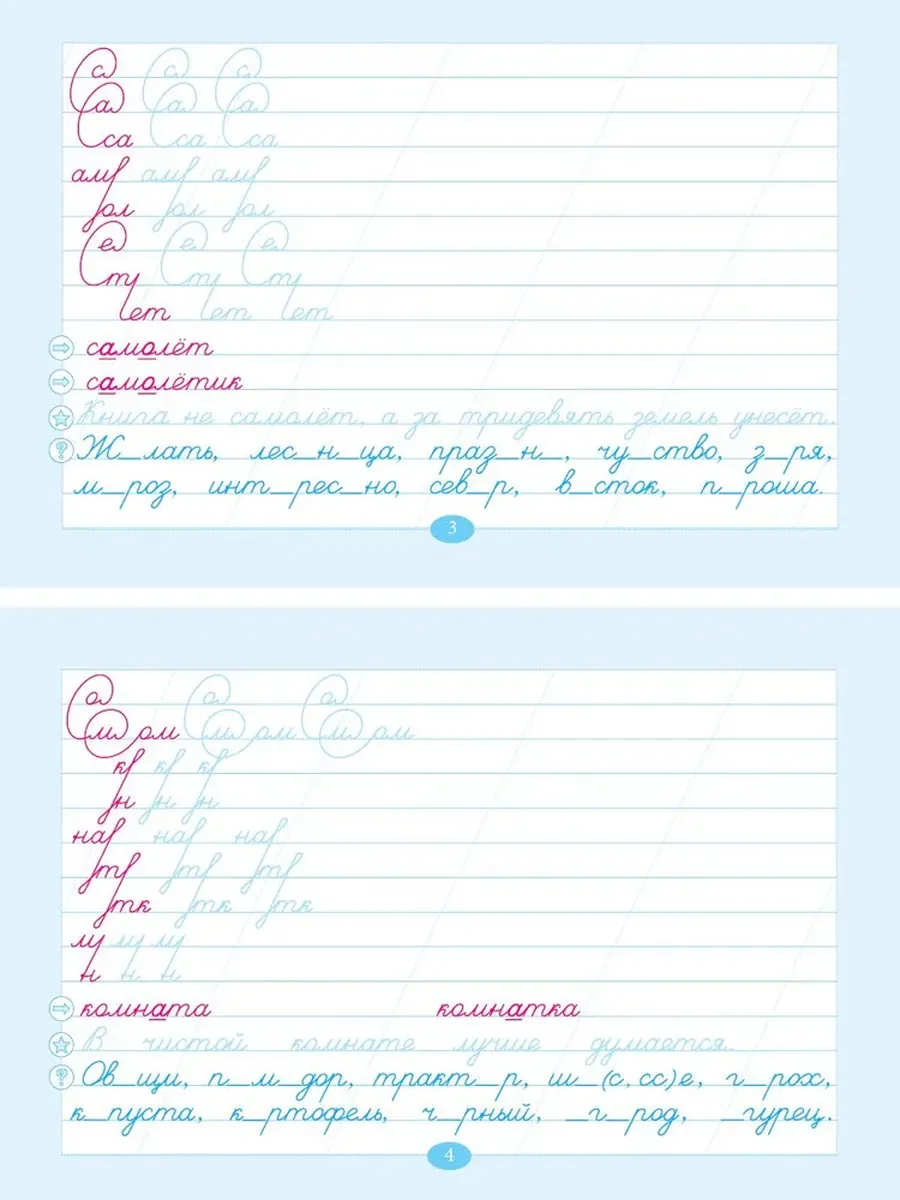 Са Са Са
Са Са Са
Сса Сса Сса
ол ол ол
Се Се Се
ту ту ту
ет ет ет
самолёт
самолётик
Книга не самолёт, а за тридевять земель унесёт.
Ж_лать, лес_н_ца, праз_н_, чу_ство, з_ря,
м_роз, инт_рес_но, сев_р, в_сток, п_роша.
3
ом ом ом
н н н
тк тк тк
лу лу лу
н н н
комната комнатка
В чистой комнате лучше думается.
Ов_щи, п_м_дор, тракт_р, ш_(с, сс)е, г_рох,
к_пуста, к_ртофель, ч_рный, _г_род, _гурец.
4